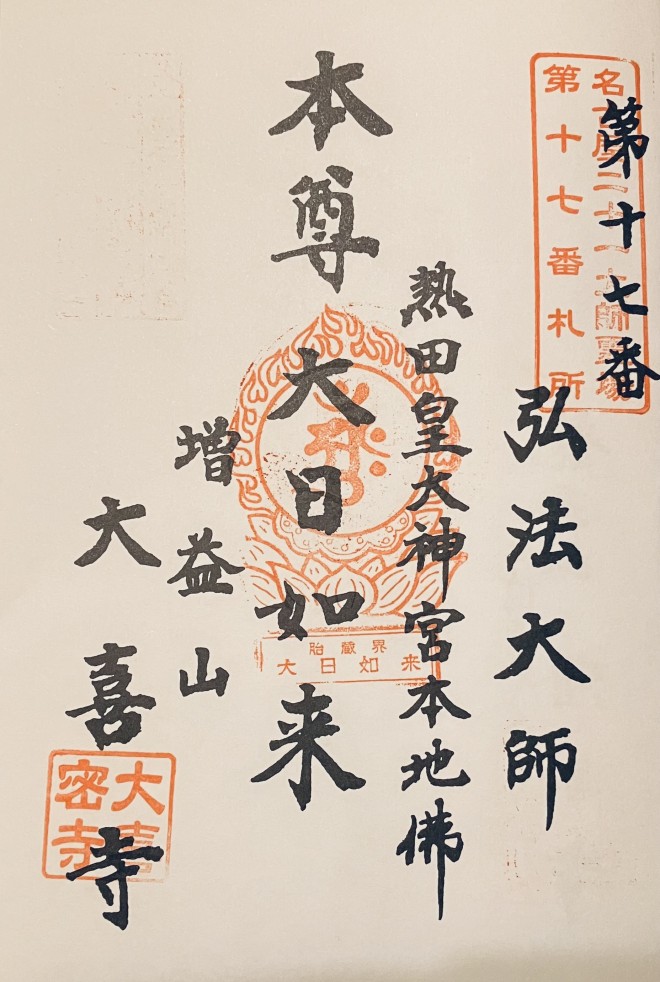 第十七番
名古屋二十一大師霊場
第十七番札所
弘法大師
熱田皇大神宮本地佛
本尊 大日如来
胎蔵界
大日如来
増益山
大喜寺
大喜
密寺